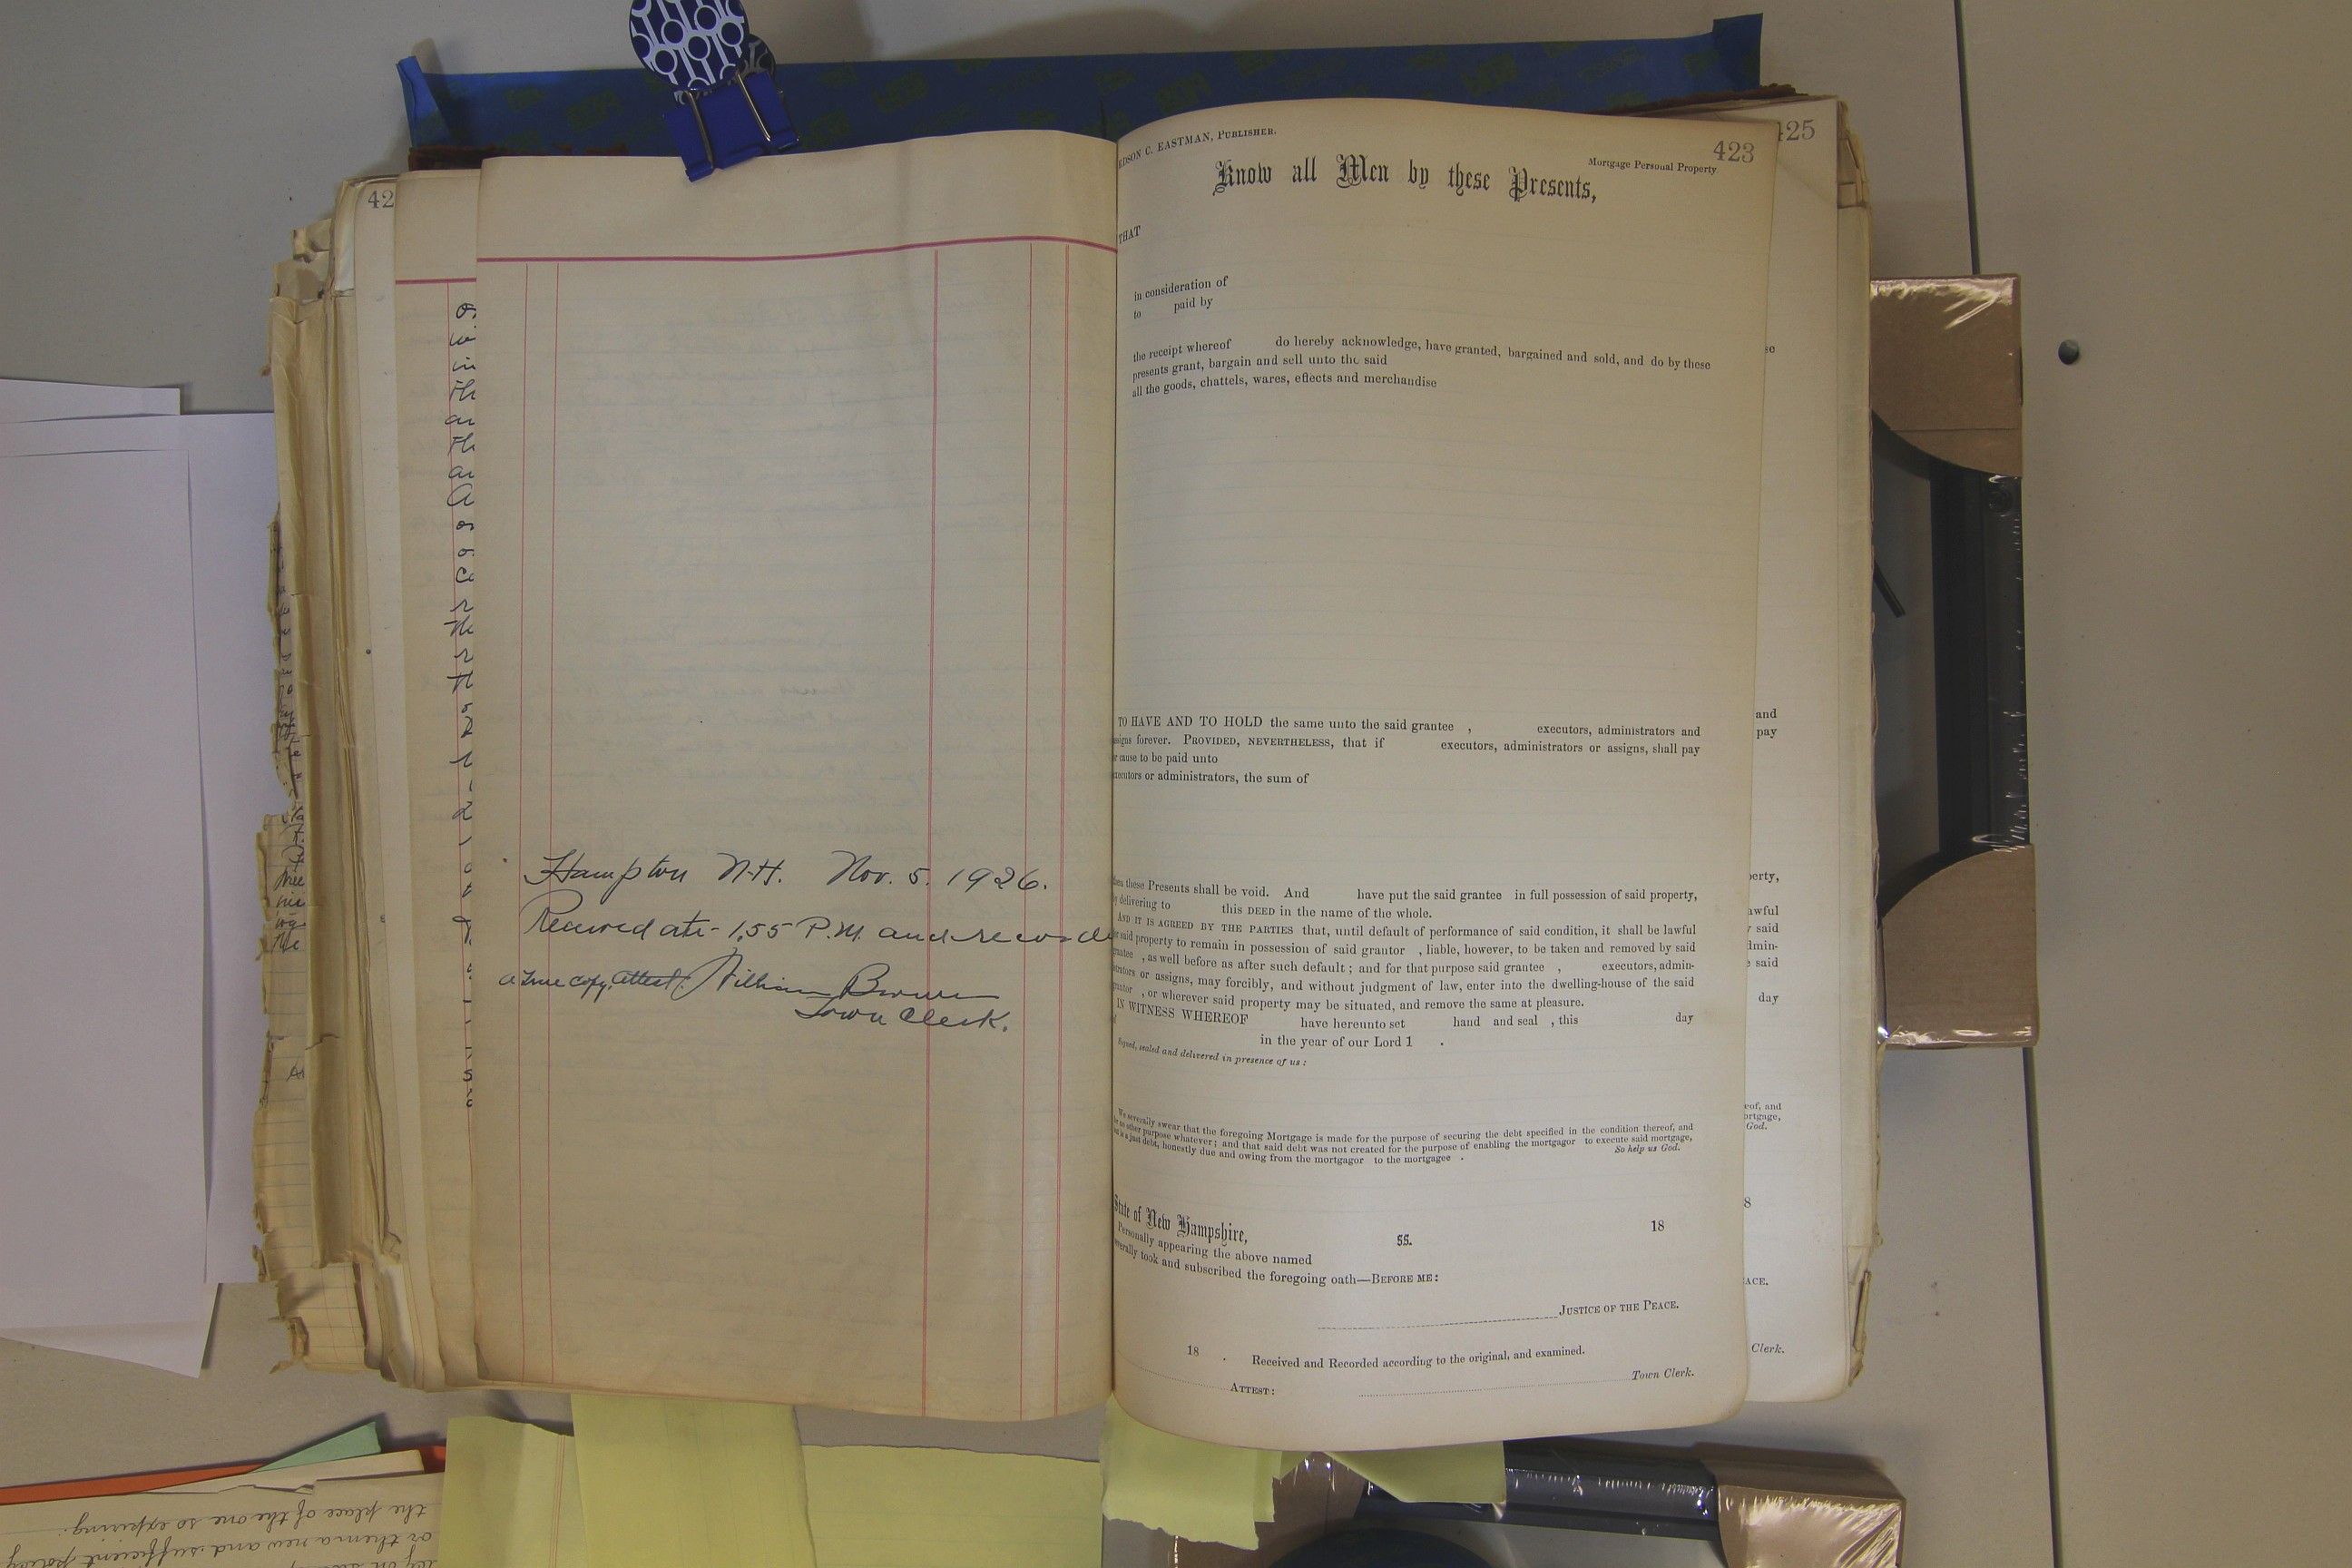 42
Hampton N.H. Nov. 5. 1926.
Received at - 1,55 P.M. and recorde
a true copy, attest: William Brown
Town Clerk.
EDSON C. EASTMAN, PUBLISHER.
423
Mortgage Personal Property.
Know all Men by these Presents,
THAT
in consideration of
to paid by
the receipt whereof do hereby acknowledge, have granted, bargained and sold, and do by these
presents grant, bargain and sell unto the said
all the goods, chattels, wares, effects and merchandise
TO HAVE AND TO HOLD the same unto the said grantee , executors, administrators and
assigns forever. PROVIDED, NEVERTHELESS, that if executors, administrators or assigns, shall pay
or cause to be paid unto
executors or administrators, the sum of
then these Presents shall be void. And have put the said grantee in full possession of said property,
by delivering to this DEED in the name of the whole.
AND IT IS AGREED BY THE PARTIES that, until default of performance of said condition, it shall be lawful
for said property to remain in possession of said grantor , liable, however, to be taken and removed by said
grantee , as well before as after such default; and for that purpose said grantee , executors, admin-
istrators or assigns, may forcibly, and without judgment of law, enter into the dwelling-house of the said
grantor , or wherever said property may be situated, and remove the same at pleasure.
IN WITNESS WHEREOF have hereunto set hand and seal , this day
of in the year of our Lord 1 .
Signed, sealed and delivered in presence of us:
We severally swear that the foregoing Mortgage is made for the purpose of securing the debt specified in the condition thereof, and
for no other purpose whatever; and that said debt was not created for the purpose of enabling the mortgagor to execute said mortgage,
but is a just debt, honestly due and owing from the mortgagor to the mortgagee . So help us God.
State of New Hampshire, ss. 18
Personally appearing the above named
severally took and subscribed the foregoing oath—BEFORE ME:
JUSTICE OF THE PEACE.
18 . Received and Recorded according to the original, and examined.
ATTEST: Town Clerk.
425
se
and
pay
perty,
awful
y said
dmin-
e said
day
eof, and
ortgage,
God.
8
ACE.
Clerk.
the place of the one so expiring.
or then a new and sufficient policy